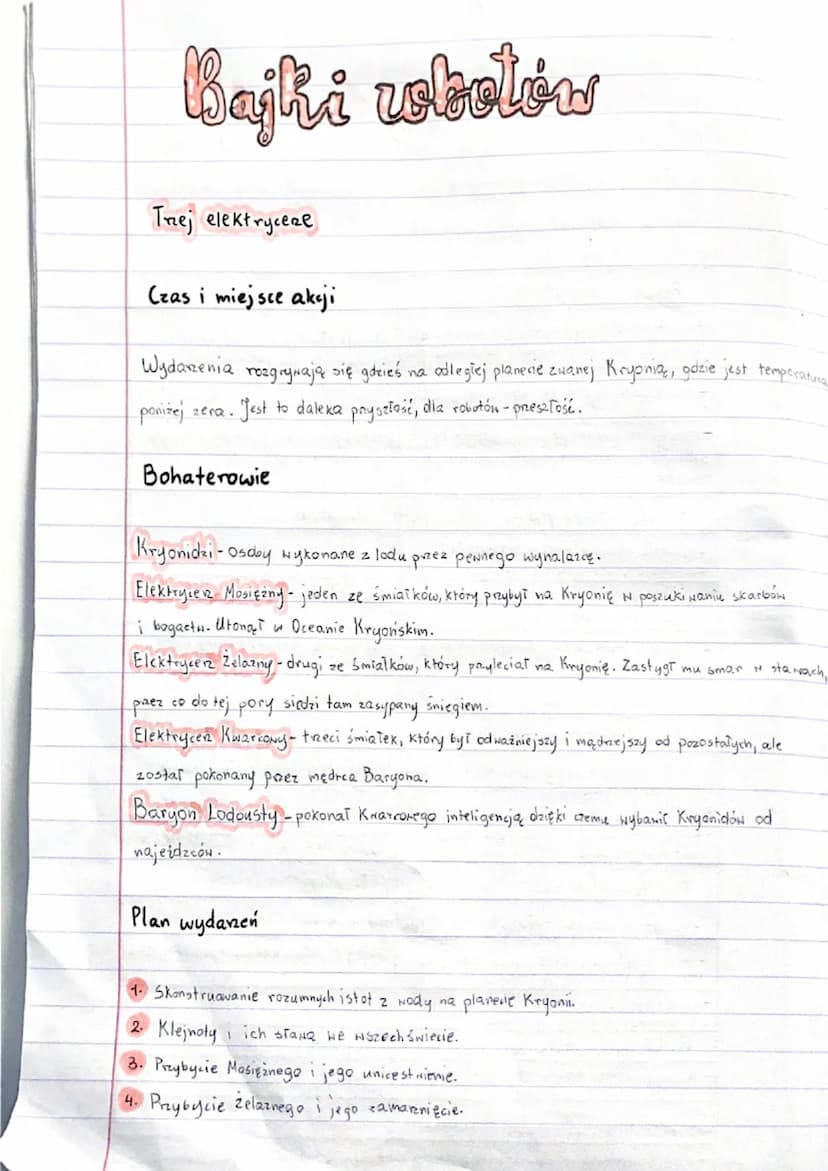 Bajki robotów
Trzej elektrycerze
Czas i miejsce akcji
Wydarzenia rozgrywają się gdzieś na odległej planecie zwanej Kryonią, gdzie jest temperatura
poniżej zera. Jest to daleka przyszłość, dla robotów - przeszłość.
Bohaterowie
Kryonidzi - osoby wykonane z lodu przez pewnego wynalazcę.
Elektrycerz Mosiężny - jeden ze śmiałków, który przybył na Kryonię w poszukiwaniu skarbów
i bogactw. Utonął w Oceanie Kryońskim.
Elektrycerz Żelazny - drugi ze śmiałków, który przyleciał na Kryonię. Zastygł mu smar w stawach,
przez co do tej pory siedzi tam zasypany śniegiem.
Elektrycerz Kwarcowy - trzeci śmiałek, który był odważniejszy i mądrzejszy od pozostałych, ale
został pokonany przez mędrca Baryona.
Baryon Lodousty - pokonał Kwarcowego inteligencją dzięki czemu wybawił Kryonidów od
najeźdzców.
Plan wydarzeń
1. Skonstruowanie rozumnych istot z wody na planecie Kryonii.
2. Klejnoty i ich sława we wszechświecie.
3. Przybycie Mosiężnego i jego unicestwienie.
4. Przybycie Żelaznego i jego zamarznięcie.